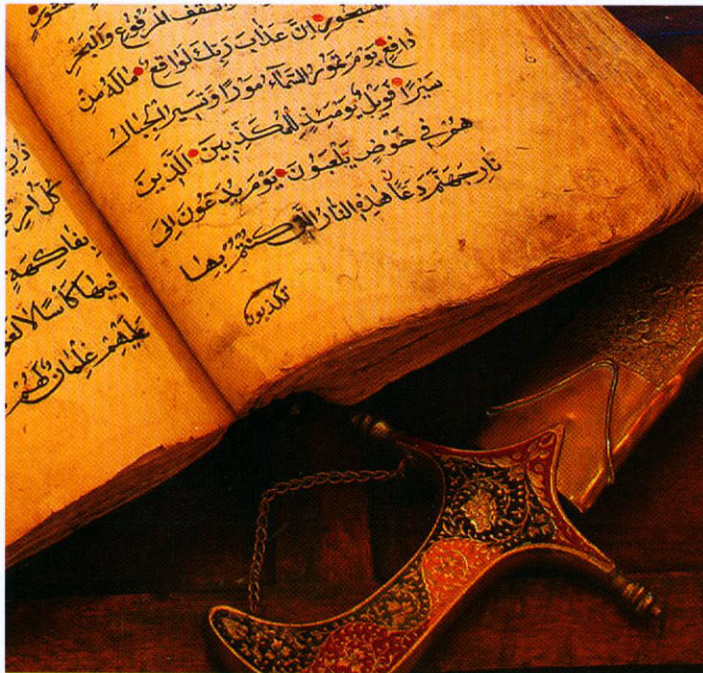 وَالسَّقْفِ الْمَرْفُوعِ وَالْبَحْرِ
الْمَسْجُورِ اِنَّ عَذَابَ رَبِّكَ لَوَاقِعٌ مَالَهُ مِنْ
دَافِعٍ يَوْمَ تَمُورُ السَّمَآءُ مَوْرًا وَتَسِيرُ الْجِبَالُ
سَيْرًا فَوَيْلٌ يَوْمَئِذٍ لِلْمُكَذِّبِينَ اَلَّذِينَ
هُمْ فِي خَوْضٍ يَلْعَبُونَ يَوْمَ يُدَعُّونَ اِلَى
نَارِ جَهَنَّمَ دَعًّا هٰذِهِ النَّارُ الَّتِي كُنْتُمْ بِهَا
تكذبون
كُلُّ
بِفَاكِهَةٍ
فِيهَا كَأْسًا لَا
عَلَيْهِمْ غِلْمَانٌ لَهُمْ